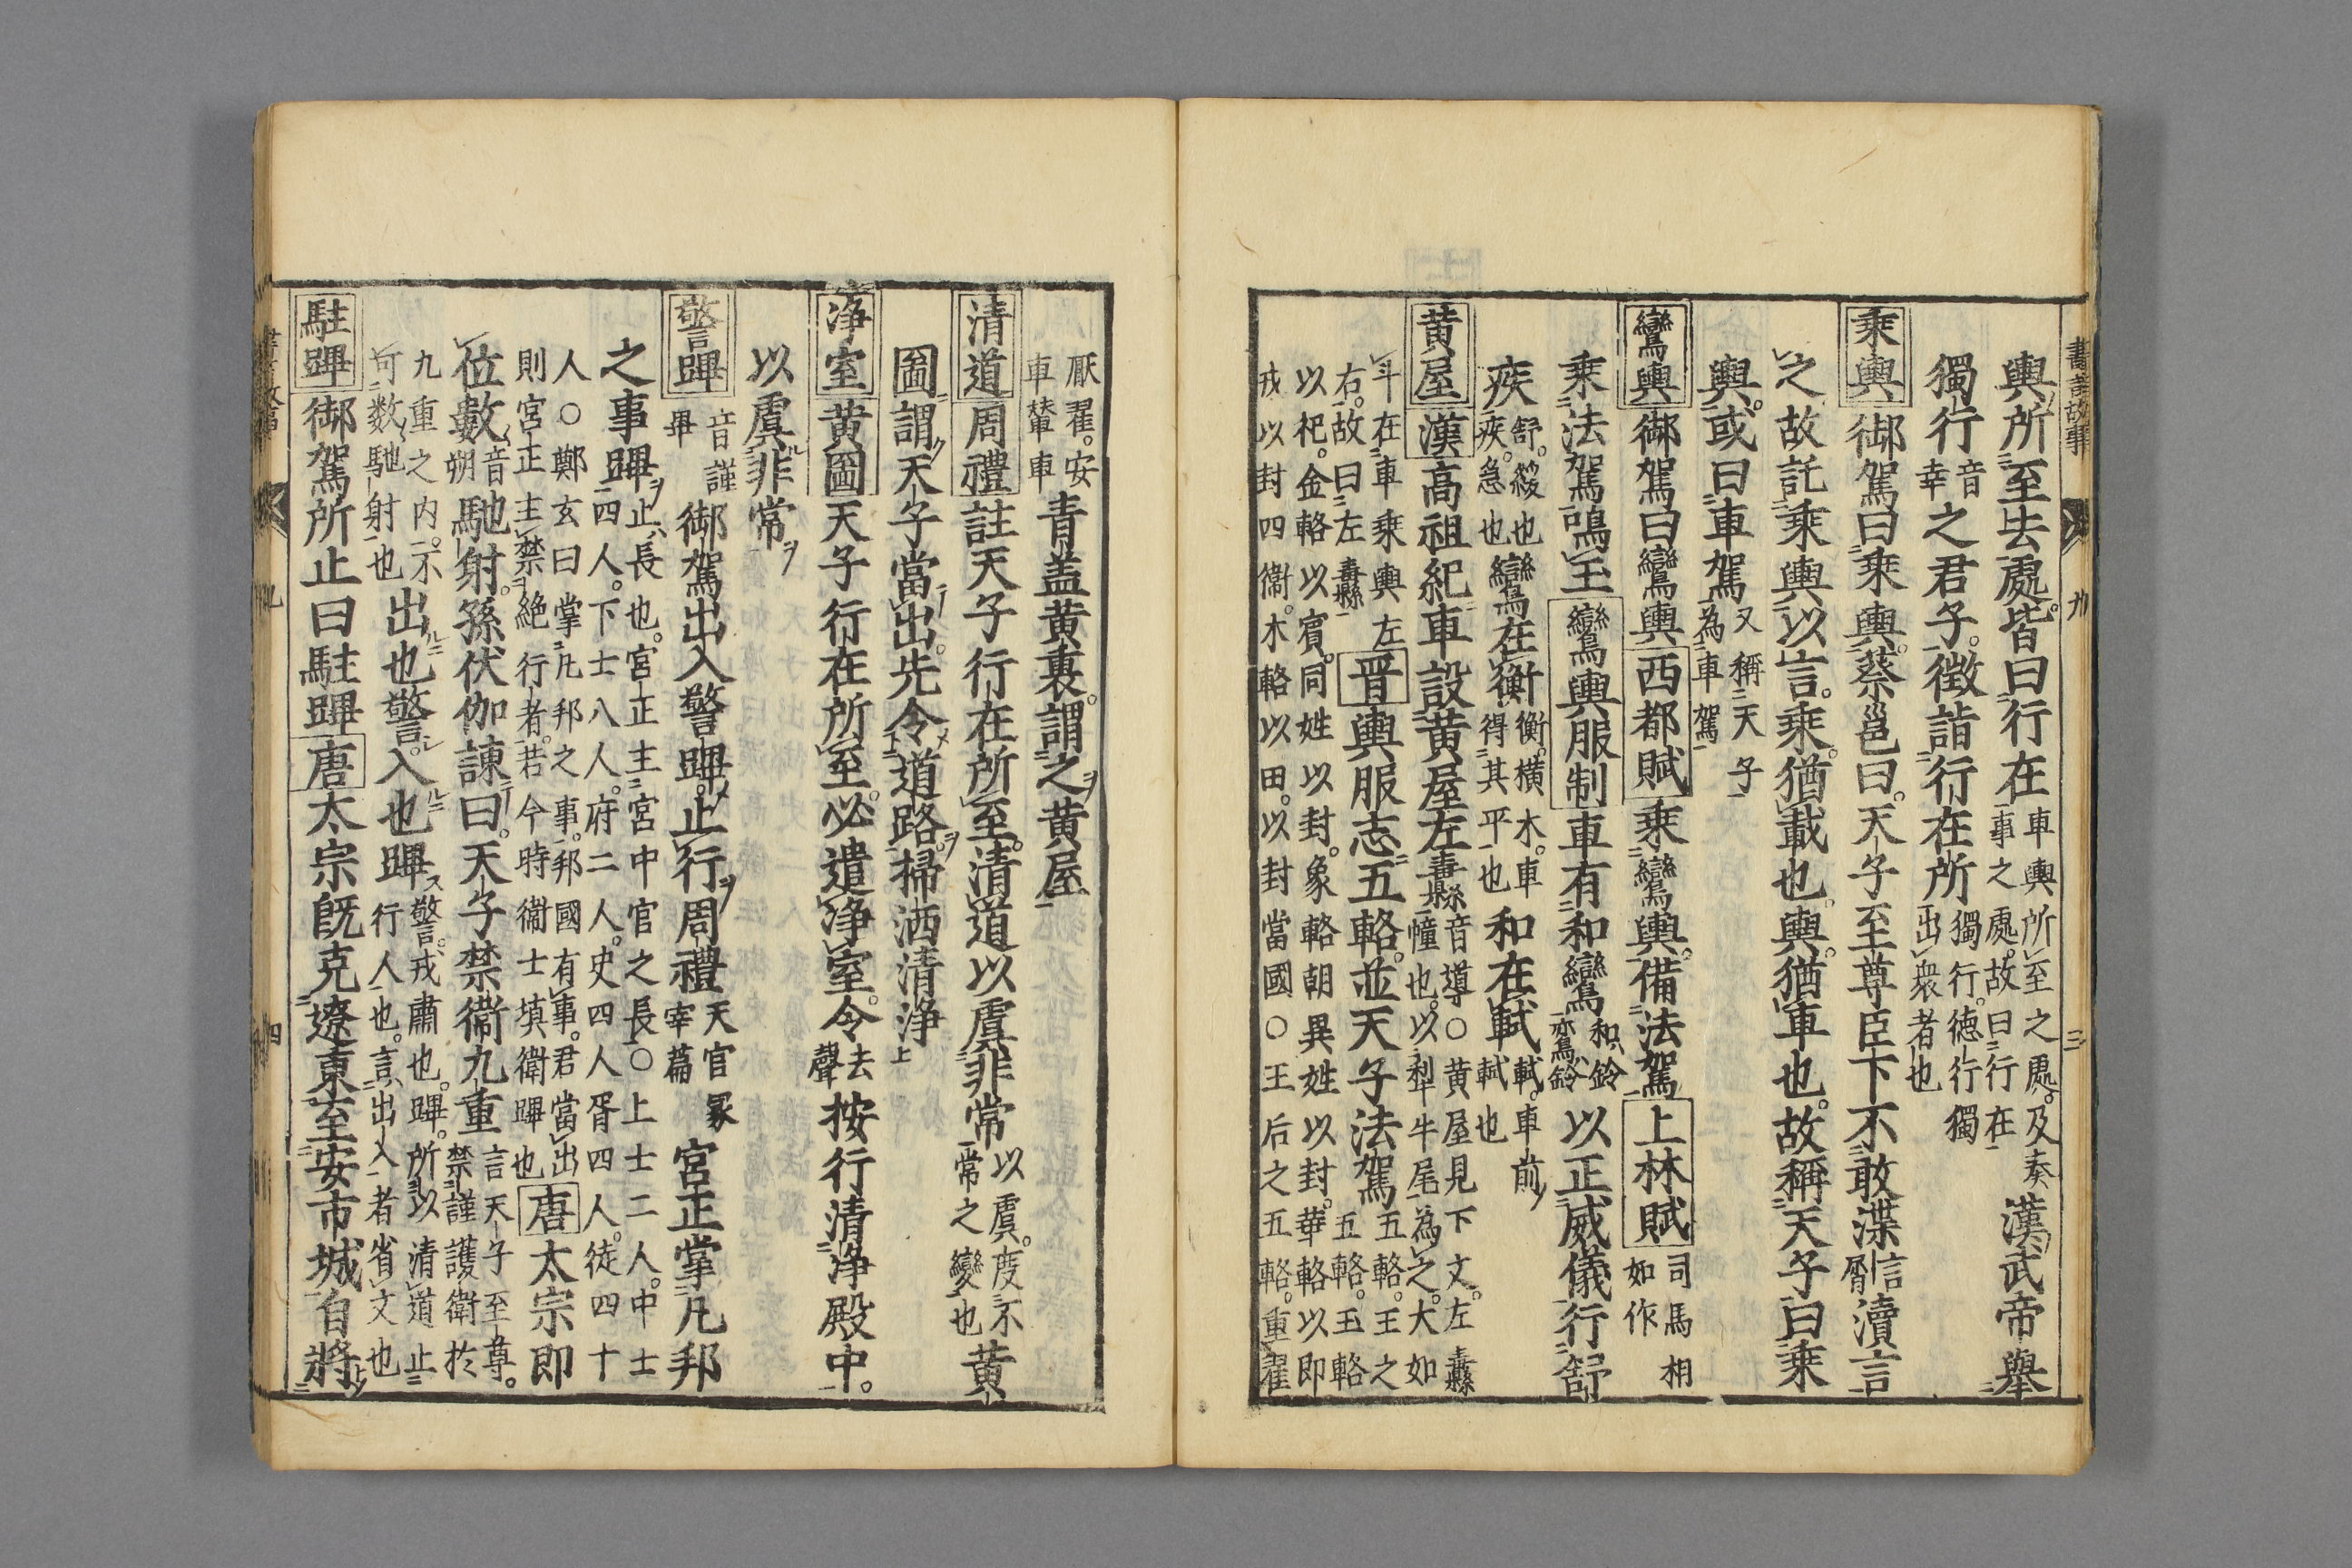 書言故事 九 三
輿所至去處皆曰行在車輿所至之處及奏
事之處故曰行在漢武帝舉
獨行音
幸之君子徵詣行在所獨行德行獨
出衆者也
乘輿御駕曰乘輿蔡邕曰天子至尊臣下不敢渫信
屑瀆言
之故託乘輿以言乘猶載也輿猶車也故稱天子曰乘
輿或曰車駕又稱天子
為車駕
鸞輿御駕曰鸞輿西都賦乘鸞輿備法駕上林賦司馬相
如作
乘法駕鳴玉鸞輿服制車有和鸞和鈴
亦鸞鈴以正威儀行舒
疾舒緩也
疾急也鸞在衡衡橫木車
得其平也和在軾軾車前
軾也
黃屋漢高祖紀車設黃屋左纛音導○黃屋見下文左纛
幢也以犁牛尾為之大如
斗在車乘輿左
右故曰左纛晋輿服志五輅並天子法駕五輅王之
五輅玉輅
以祀金輅以賓同姓以封象輅朝異姓以封革輅以即
戎以封四衞木輅以田以封當國○王后之五輅重翟
厭翟安
車輦車青盖黃裏謂之黃屋
清道周禮註天子行在所至清道以虞非常以虞度不
常之變也黃
圖謂天子當出先令道路掃洒清浄
浄室黃圖天子行在所至必遣浄室令去
聲按行清浄殿中
以虞非常
警蹕音謹
畢御駕出入警蹕止行周禮天官冢
宰篇宮正掌凡邦
之事蹕止長也宮正主宮中官之長○上士二人中士
四人下士八人府二人史四人胥四人徒四十
人○鄭玄曰掌凡邦之事邦國有事君當出
則宮正主禁絶行者若今時衞士填衛蹕也唐太宗即
位數音
朔馳射孫伏伽諫曰天子禁衞九重言天子至尊
禁謹護衛於
九重之内不
可數馳射也出也警入也蹕警戒肅也蹕所以清道止
行人也言出入者省文也
駐蹕御駕所止曰駐蹕唐太宗旣克遼東至安市城自將
四